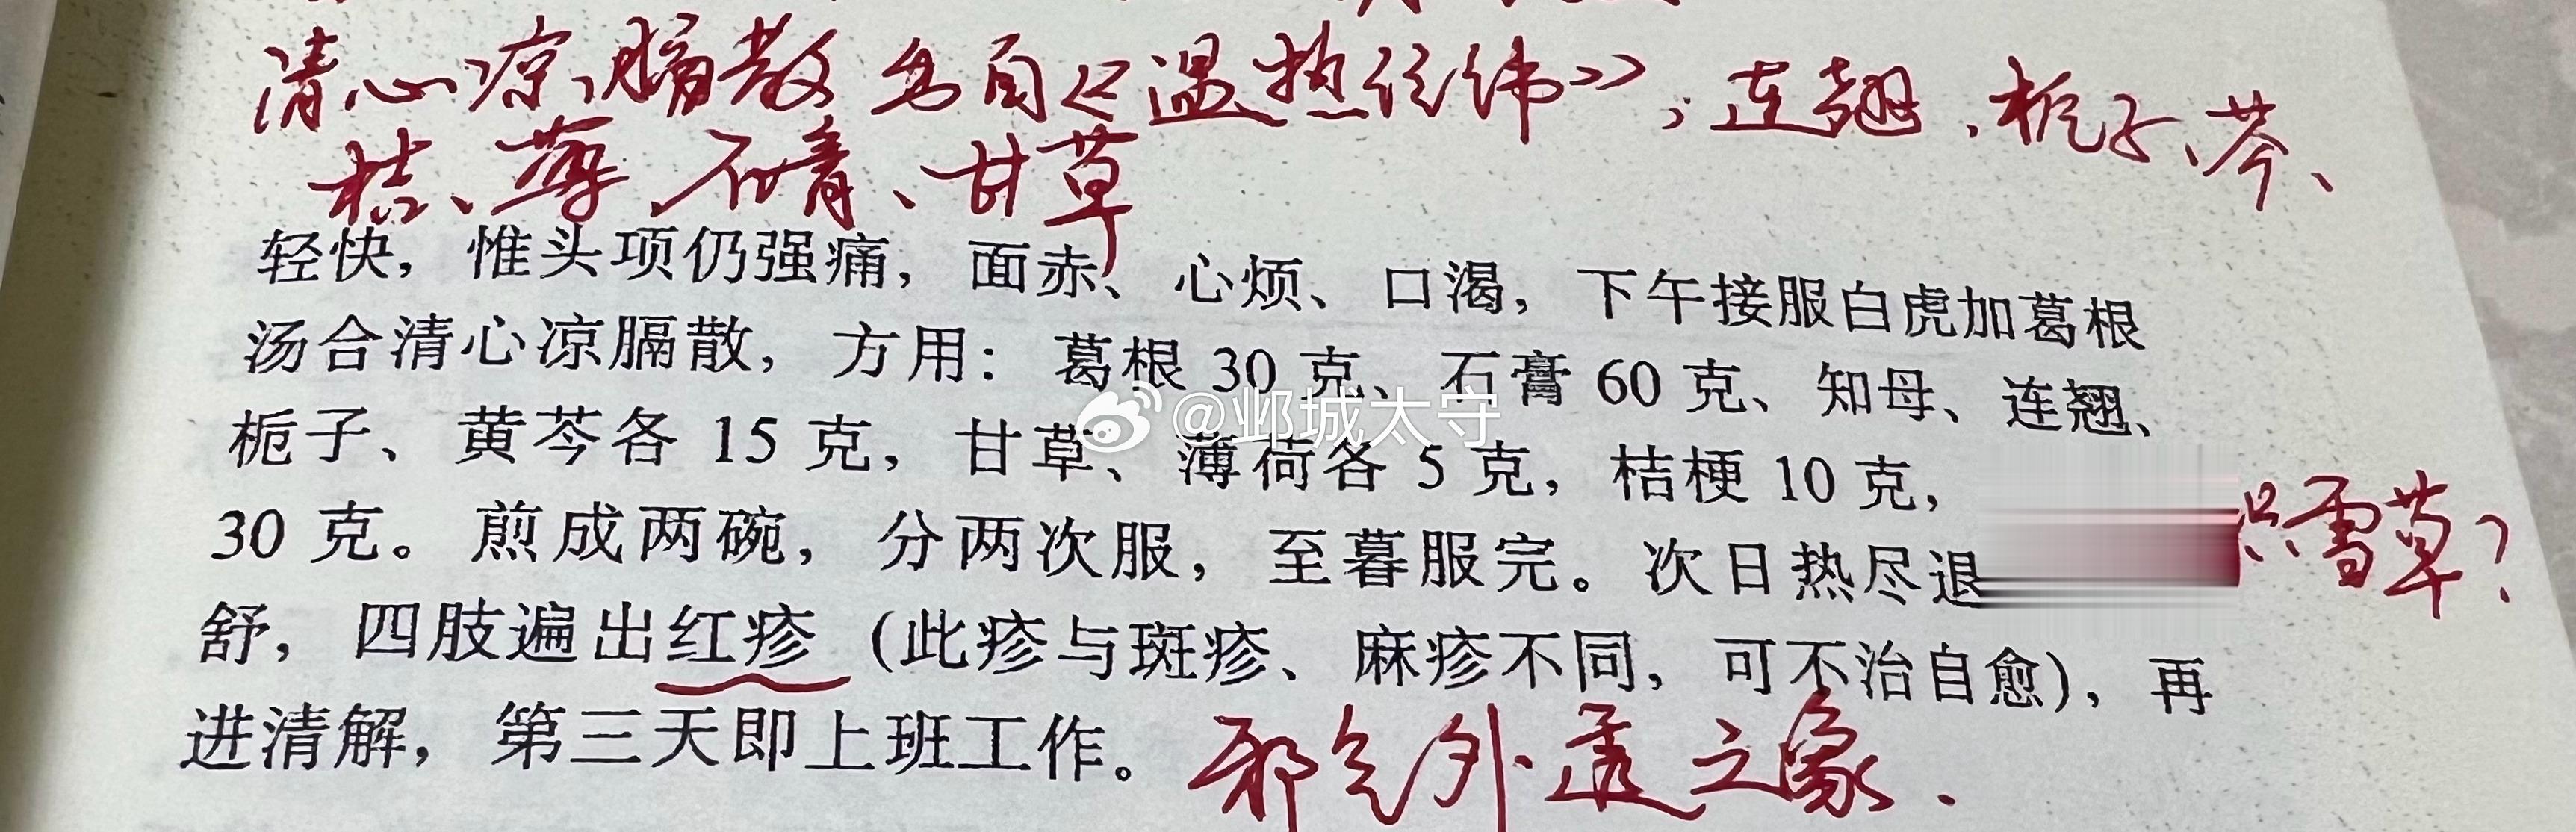 清心凉膈散出自《温热经纬》；连翘、栀子、芩、
桔、薄、石膏、甘草
轻快，惟头项仍强痛，面赤、心烦、口渴，下午接服白虎加葛根
汤合清心凉膈散，方用：葛根 30 克、石膏 60 克、知母、连翘、
栀子、黄芩各 15 克，甘草、薄荷各 5 克，桔梗 10 克，
雪草？
30 克。煎成两碗，分两次服，至暮服完。次日热尽退
舒，四肢遍出红疹（此疹与斑疹、麻疹不同，可不治自愈），再
进清解，第三天即上班工作。
邪气外透之象.
@邺城太守